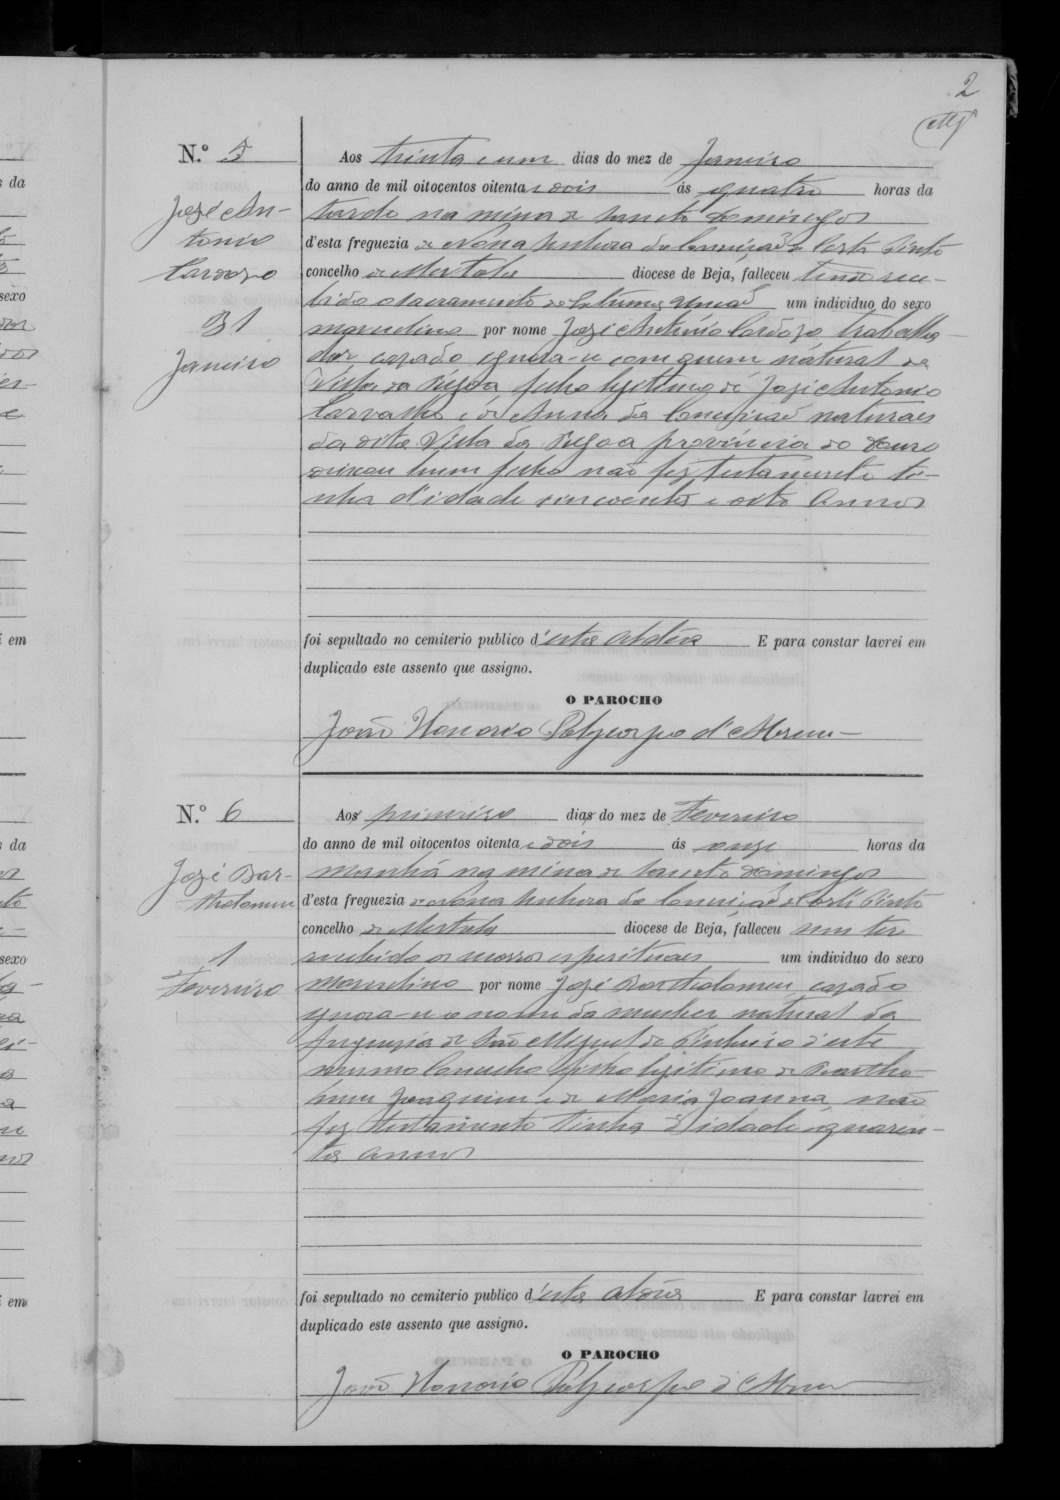 2
N.º 5
Aos trinta e um dias do mez de Janeiro
do anno de mil oitocentos oitenta e dois ás quatro horas da
José An-
tarde na mina de Sancto Domingos
tonio
d'esta freguezia de Nossa Senhora da Conceicaõ de Corte Pinto
Cardozo
concelho de Mertola diocese de Beja, falleceu tendo rece-
bido o sacramento da Extrema Uncaõ um individuo do sexo
31
masculino por nome José Antonio Cardozo, trabalha-
Janeiro
dor cazado ignora-se com quem natural da
Villa da Regoa filho legitimo de José Antonio
Carvalho e de Anna da Conceição naturaes
da dita Villa da Regoa provincia do Douro
deixou hum filho não fez testamento ti-
nha d'idade cincoenta e oito annos
foi sepultado no cemiterio publico d'esta aldêa E para constar lavrei em
duplicado este assento que assigno.
O PAROCHO
João Honorio d'Abreu
N.º 6
Aos primeiro dias do mez de Fevereiro
do anno de mil oitocentos oitenta e dois ás onze horas da
José Bar-
manhã na mina de Sancto Domingos
tholomeu
d'esta freguezia de Nossa Senhora da Conceicaõ de Corte Pinto
concelho de Mertola diocese de Beja, falleceu sem ter
1
recebido os espirituaes um individuo do sexo
Fevereiro
masculino por nome José Bartholomeu, cazado
ignora-se o nome da mulher natural da
freguezia de São Miguel do Pinheiro d'este
mesmo Concelho filho legitimo de Bartho-
lomeu Joaquim e de Maria Joanna, não
fez testamento tinha d'idade quaren-
ta annos
foi sepultado no cemiterio publico d'esta aldêa E para constar lavrei em
duplicado este assento que assigno.
O PAROCHO
João Honorio d'Abreu